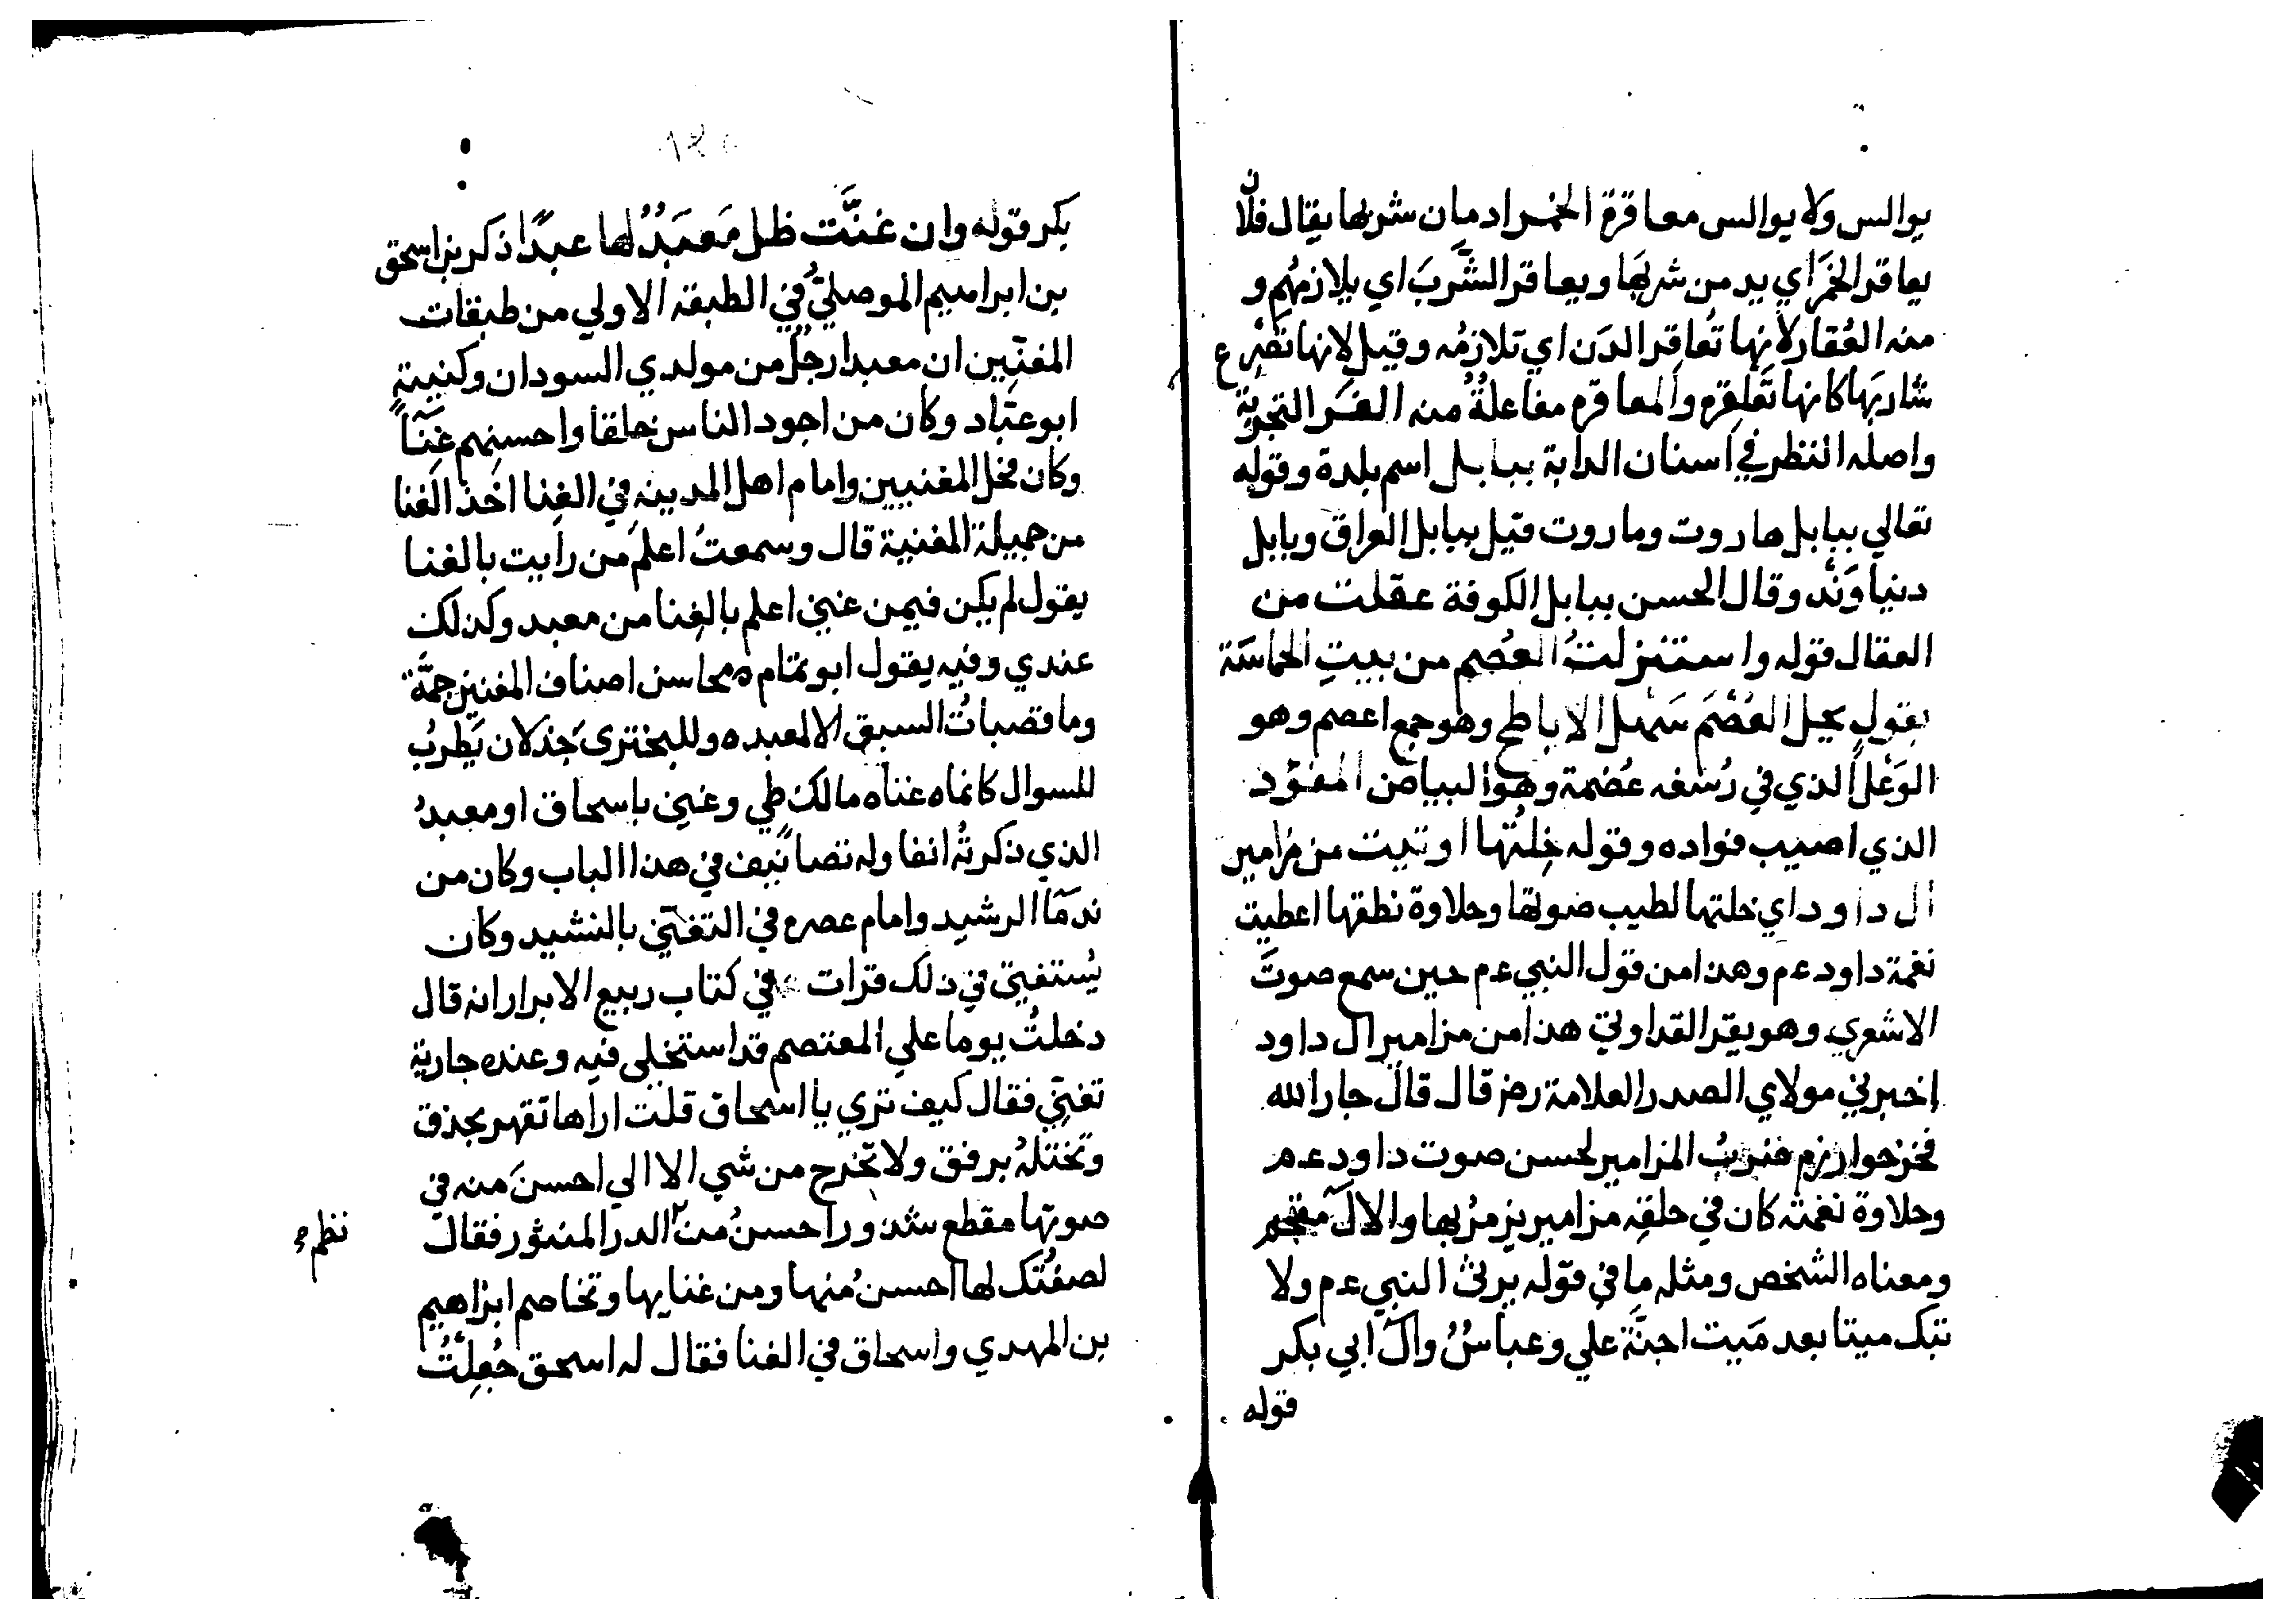 يوالس ولا يوالس معاقرة الخمر ادمان شربها يقال فلان
يعاقر الخمَرَ اي يدمن شربَها ويعاقر الشَّربَ اي يلازمُهم و
منه العُقار لانها تُعاقِر الدَن اي تلازمُه وقيل لانها تَصْرع
شاربَها كانها تَعقِره والمعاقره مفاعلةٌ منه الفَـر التجربة
واصله النظر في اسنان الدابة ببابل اسم بلدة وقوله
تعالي ببابل هاروت وماروت قيل ببابل العراق وبابل
دنياوَند وقال الحسن ببابل الكوفة عقلت من
العقال قوله واستنزلتُ العُصم من بيتِ الحماسَة
يقول يحل العُصْمَ سَهل الاباطح وهو جمع اعصم وهو
الوَعْل الذي في رُسغه عُصمة وهو البياض المفؤد
الذي اصيب فواده وقوله خِلتُها اوتيت من مزامير
ال داود اي خلتها لطيب صوتها وحلاوة نطقها اعطيت
نغمة داود عم وهذا من قول النبي عم حين سمع صوتَ
الاشعري وهو يقر القد اوتي هذا من مزامير ال داود
اخبرني مولاي الصدر العلامة رضز قال قال جار الله
فخر خوارزم ضُربتُ المزامير لحسن صوت داود عم
وحلاوة نغمته كان في حلقه مزامير يزمرُ بها والال مقحم
ومعناه الشخص ومثله ما في قوله يرثي النبي عم ولا
تبك ميتا بعد مَيت اجنَّة علي وعباسٌ وال ابي بكر
قوله
بكر قوله وان غنَّت ظل مَعبَدٌ لها عبدًا ذكر بن اسحق
بن ابراهيم الموصليُّ في الطبقه الاولي من طبقات
المغنّيين ان معبدا رجلٌ من مولدي السودان وكنيته
ابو عبّاد وكان من اجود الناس خلقا واحسنهم غِنَاً
وكان فحل المغنيين وامام اهل المدينه في الغِنا اخَذ الغنا
من جميلة المغنية قال وسمعتُ اعلمَ من رايت بالغنا
يقول لم يكن فيمن غني اعلم بالغِنا من معبد وكذلك
عندي وفيه يقول ابو تمام ه محاسن اصناف المغنين جمّةً
وما قصباتُ السبق الا لمعبد ه وللبحتري جَذلان يَطربُ
للسوال كانماه غناه مالك طي وغني باسحاق او معبدُ
الذي ذكرتُه انفا وله تصانيف في هذا الباب وكان من
ندمَآ الرشيد وامام عصره في التغنّي بالنشيد وكان
يُستفتي في ذلك قرات في كتاب ربيع الابرار انه قال
دخلتُ يوما علي المعتصم قد استخلي فيه وعنده جارية
تغنِّي فقال كيف تري يا اسحاق قلت اراها تقهر بحذق
وتختلُه برفق ولا تخرج من شي الا الي احسنَ منه في
صوتها مقطع شذور احسنُ من الدر المنثور فقال
نظم
لصفتُك لها احسنُ منها ومن غنايها وتخاصم ابراهيم
بن المهدي واسحاق في الغنا فقال له اسحق جُعِلتُ